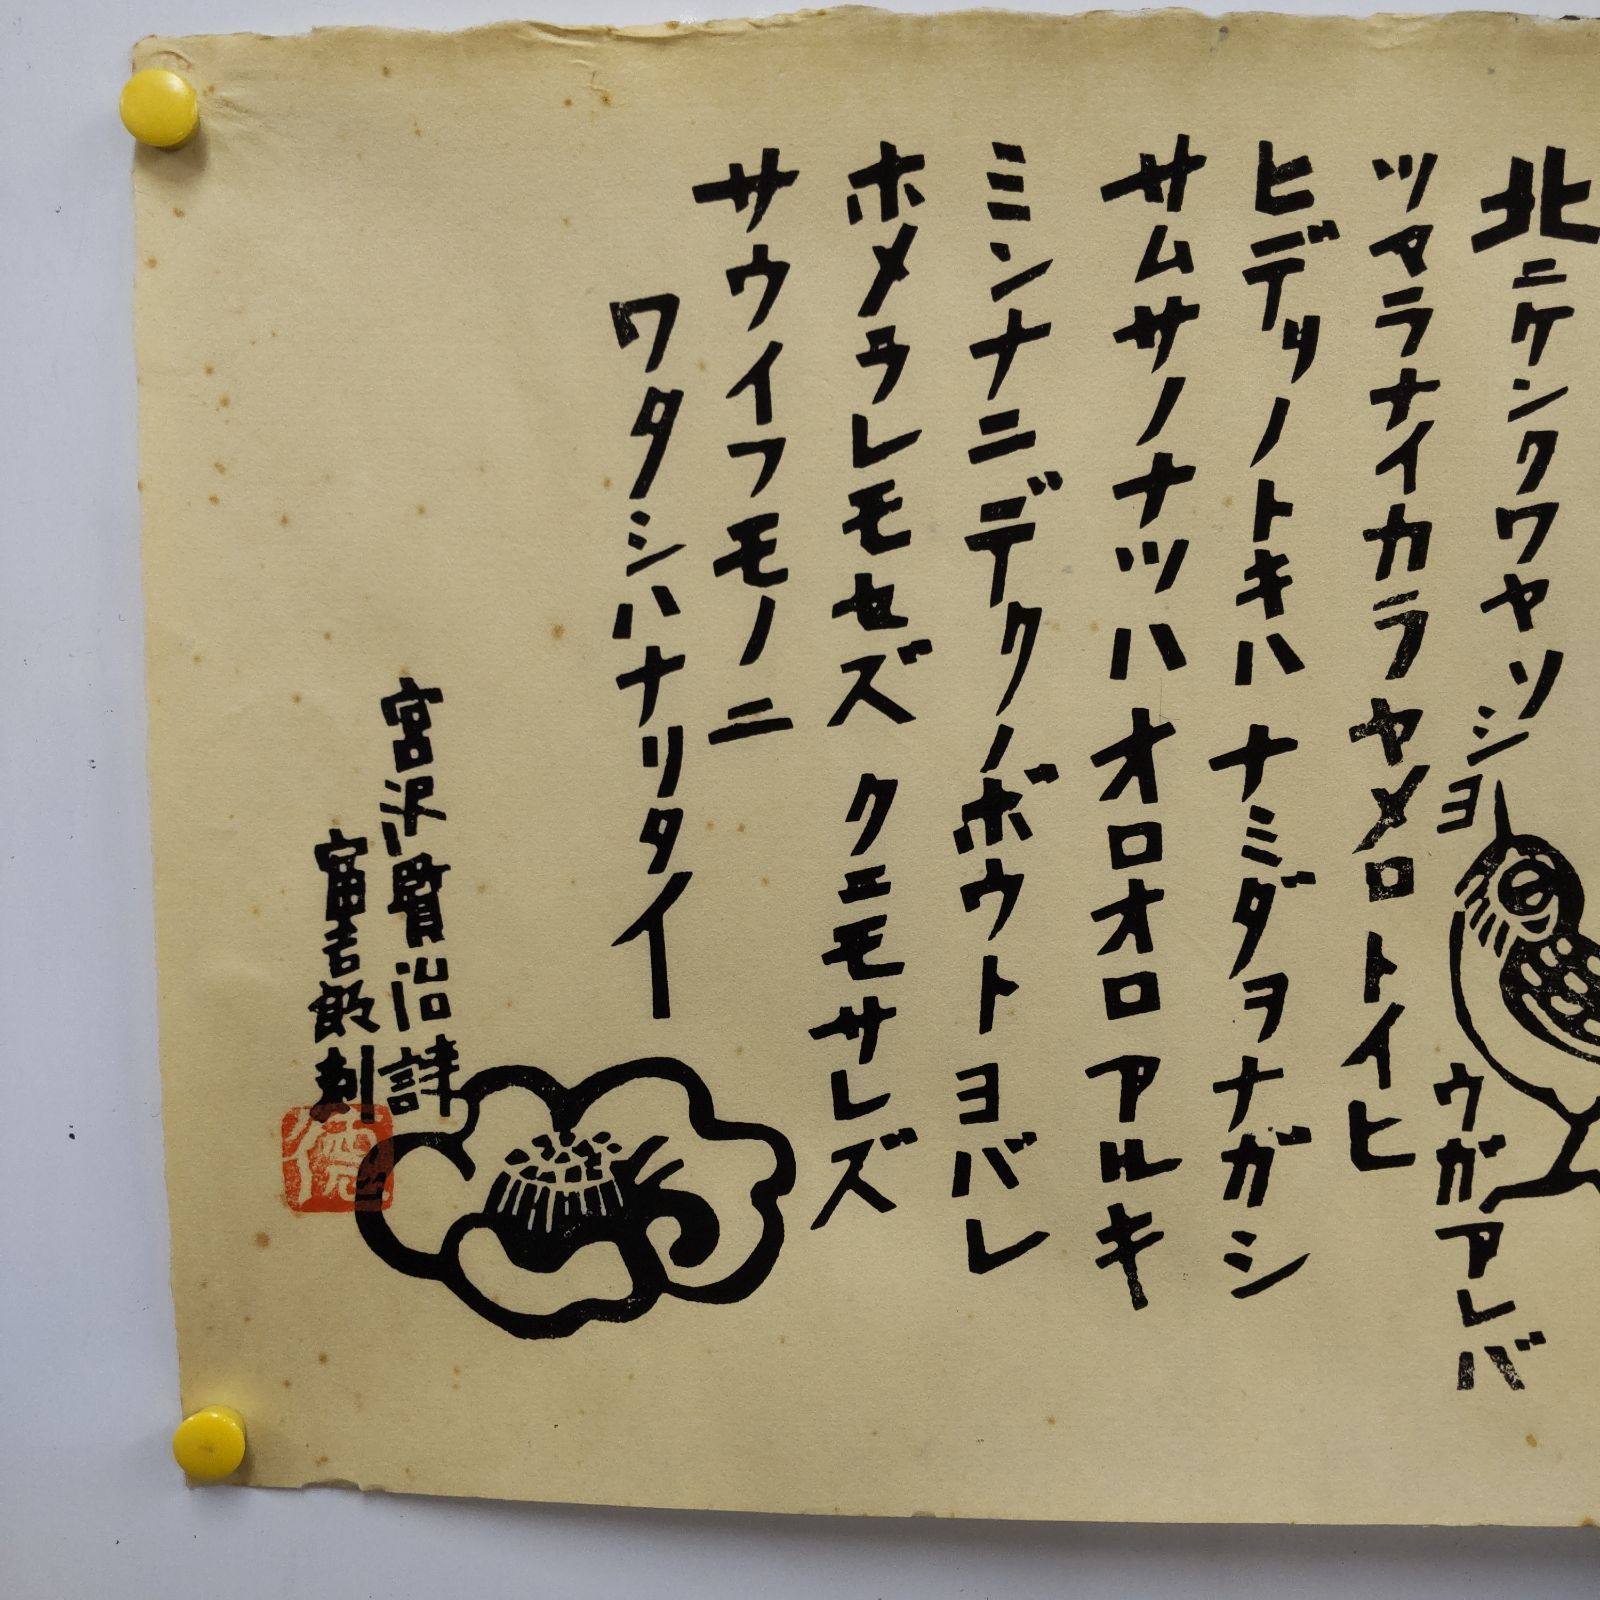 北ニケンクワヤソショウガアレバ
ツマラナイカラヤメロトイヒ
ヒデリノトキハナミダヲナガシ
サムサノナツハオロオロアルキ
ミンナニデクノボウトヨバレ
ホメラレモセズ クニモサレズ
サウイフモノニ
ワタシハナリタイ
宮沢賢治詩
富吉郎刻